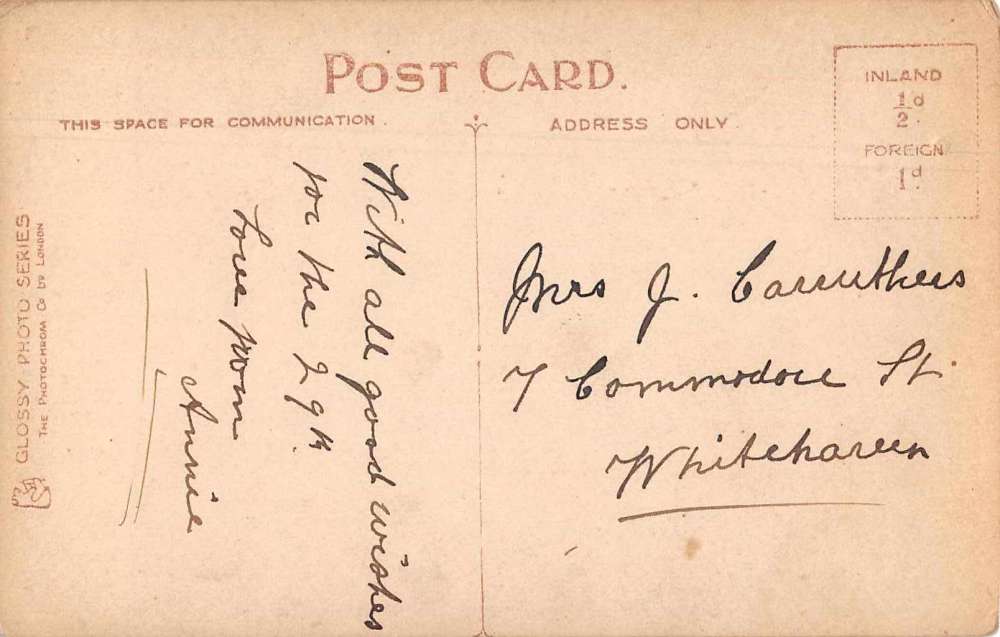 POST CARD.
THIS SPACE FOR COMMUNICATION.
ADDRESS ONLY.
INLAND
1/2d.
FOREIGN
1d.
With all good wishes
for the 29th.
Love from
Annie
Mrs J. Carruthers
7 Commodore St.
Whitehaven
GLOSSY PHOTO SERIES
THE PHOTOCHROM CO LTD LONDON